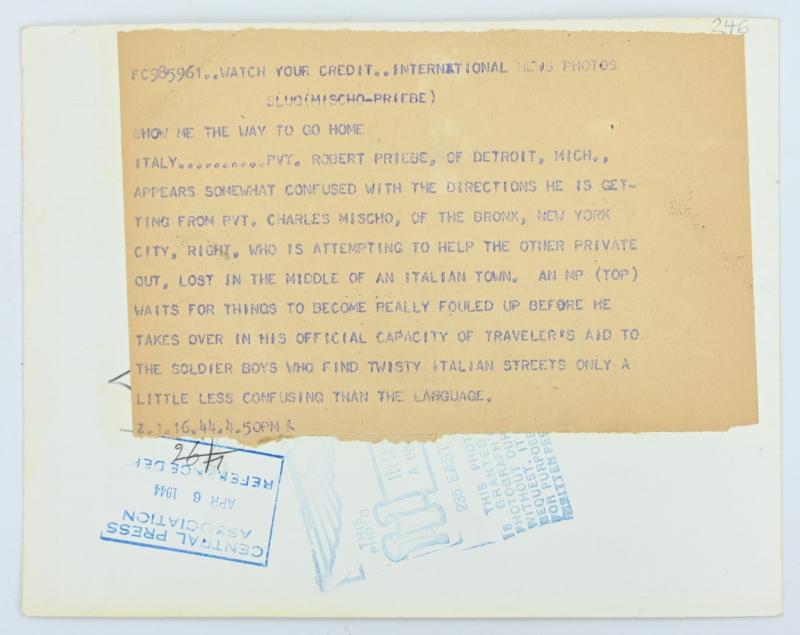 246
FC985961..WATCH YOUR CREDIT..INTERNATIONAL NEWS PHOTOS
SLUG(MISCHO-PRIEBE)
SHOW ME THE WAY TO GO HOME
ITALY..........PVT. ROBERT PRIEBE, OF DETROIT, MICH.,
APPEARS SOMEWHAT CONFUSED WITH THE DIRECTIONS HE IS GET-
TING FROM PVT. CHARLES MISCHO, OF THE BRONX, NEW YORK
CITY, RIGHT, WHO IS ATTEMPTING TO HELP THE OTHER PRIVATE
OUT, LOST IN THE MIDDLE OF AN ITALIAN TOWN. AN MP (TOP)
WAITS FOR THINGS TO BECOME REALLY FOULED UP BEFORE HE
TAKES OVER IN HIS OFFICIAL CAPACITY OF TRAVELER'S AID TO
THE SOLDIER BOYS WHO FIND TWISTY ITALIAN STREETS ONLY A
LITTLE LESS CONFUSING THAN THE LANGUAGE.
Z.1.16.44.4.50PM R
CENTRAL PRESS
ASSOCIATION
APR 6 1944
REFERENCE DEP
THIS
PHOTO
IN
A UN
235 EAST
PHOT
THIS
GRANTED
PHOTOGRAPH
IS
YOUR
PHOTO
WITHOUT
REQUEST.
FOR PURPOSE
WRITTEN PE